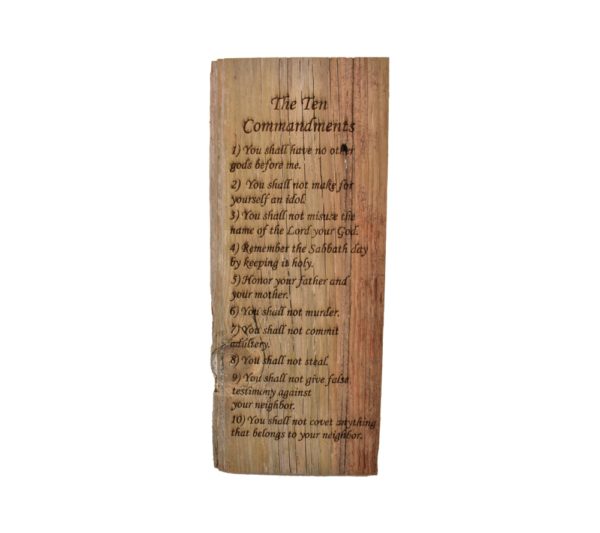 The Ten
Commandments
1) You shall have no other
gods before me.
2) You shall not make for
yourself an idol.
3) You shall not misuse the
name of the Lord your God.
4) Remember the Sabbath day
by keeping it holy.
5) Honor your father and
your mother.
6) You shall not murder.
7) You shall not commit
adultery.
8) You shall not steal.
9) You shall not give false
testimony against
your neighbor.
10) You shall not covet anything
that belongs to your neighbor.